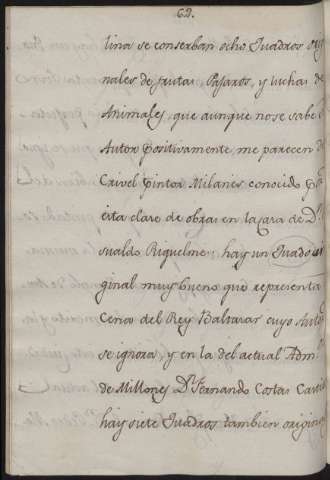 62.
tina se conserban ocho Quadros origi
nales de frutas Pajaros, y luchas de
Animales, que aunque no se sabe el
Autor positivamente, me parecen de
Crivel pintor Milanes conocido por
esta clase de obras en la Casa de Dn
sualdo Riquelme; hay un Quadro ori
ginal muy bueno que representa
Cena del Rey Baltasar cuyo Autor
se ignora, y en la del actual Admr
de Millones Dn Fernando Costas Cas
hay siete Quadros tambien origin